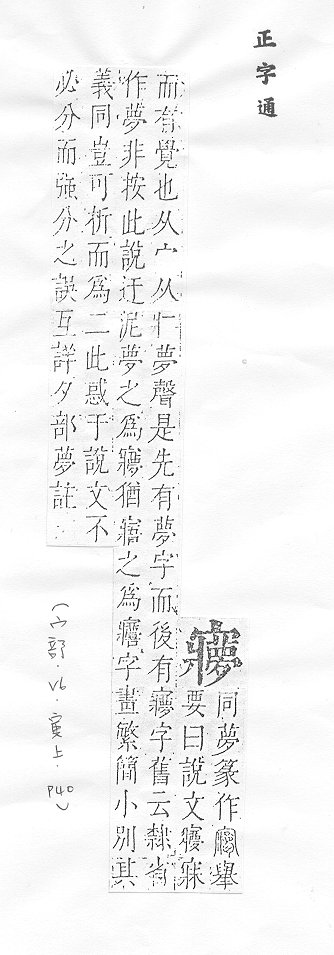 正字通
㝱
同夢篆作舉
要曰說文㝱寐
而有覺也从宀从疒夢聲是先有夢字而後有㝱字舊云隸省
作夢非按此說迂泥夢之為㝱猶寤之為字畫繁簡小別其
義同豈可析而為二此惑于說文不
必分而強分之誤互詳夕部夢註
(宀部.V6.寅上.P40)